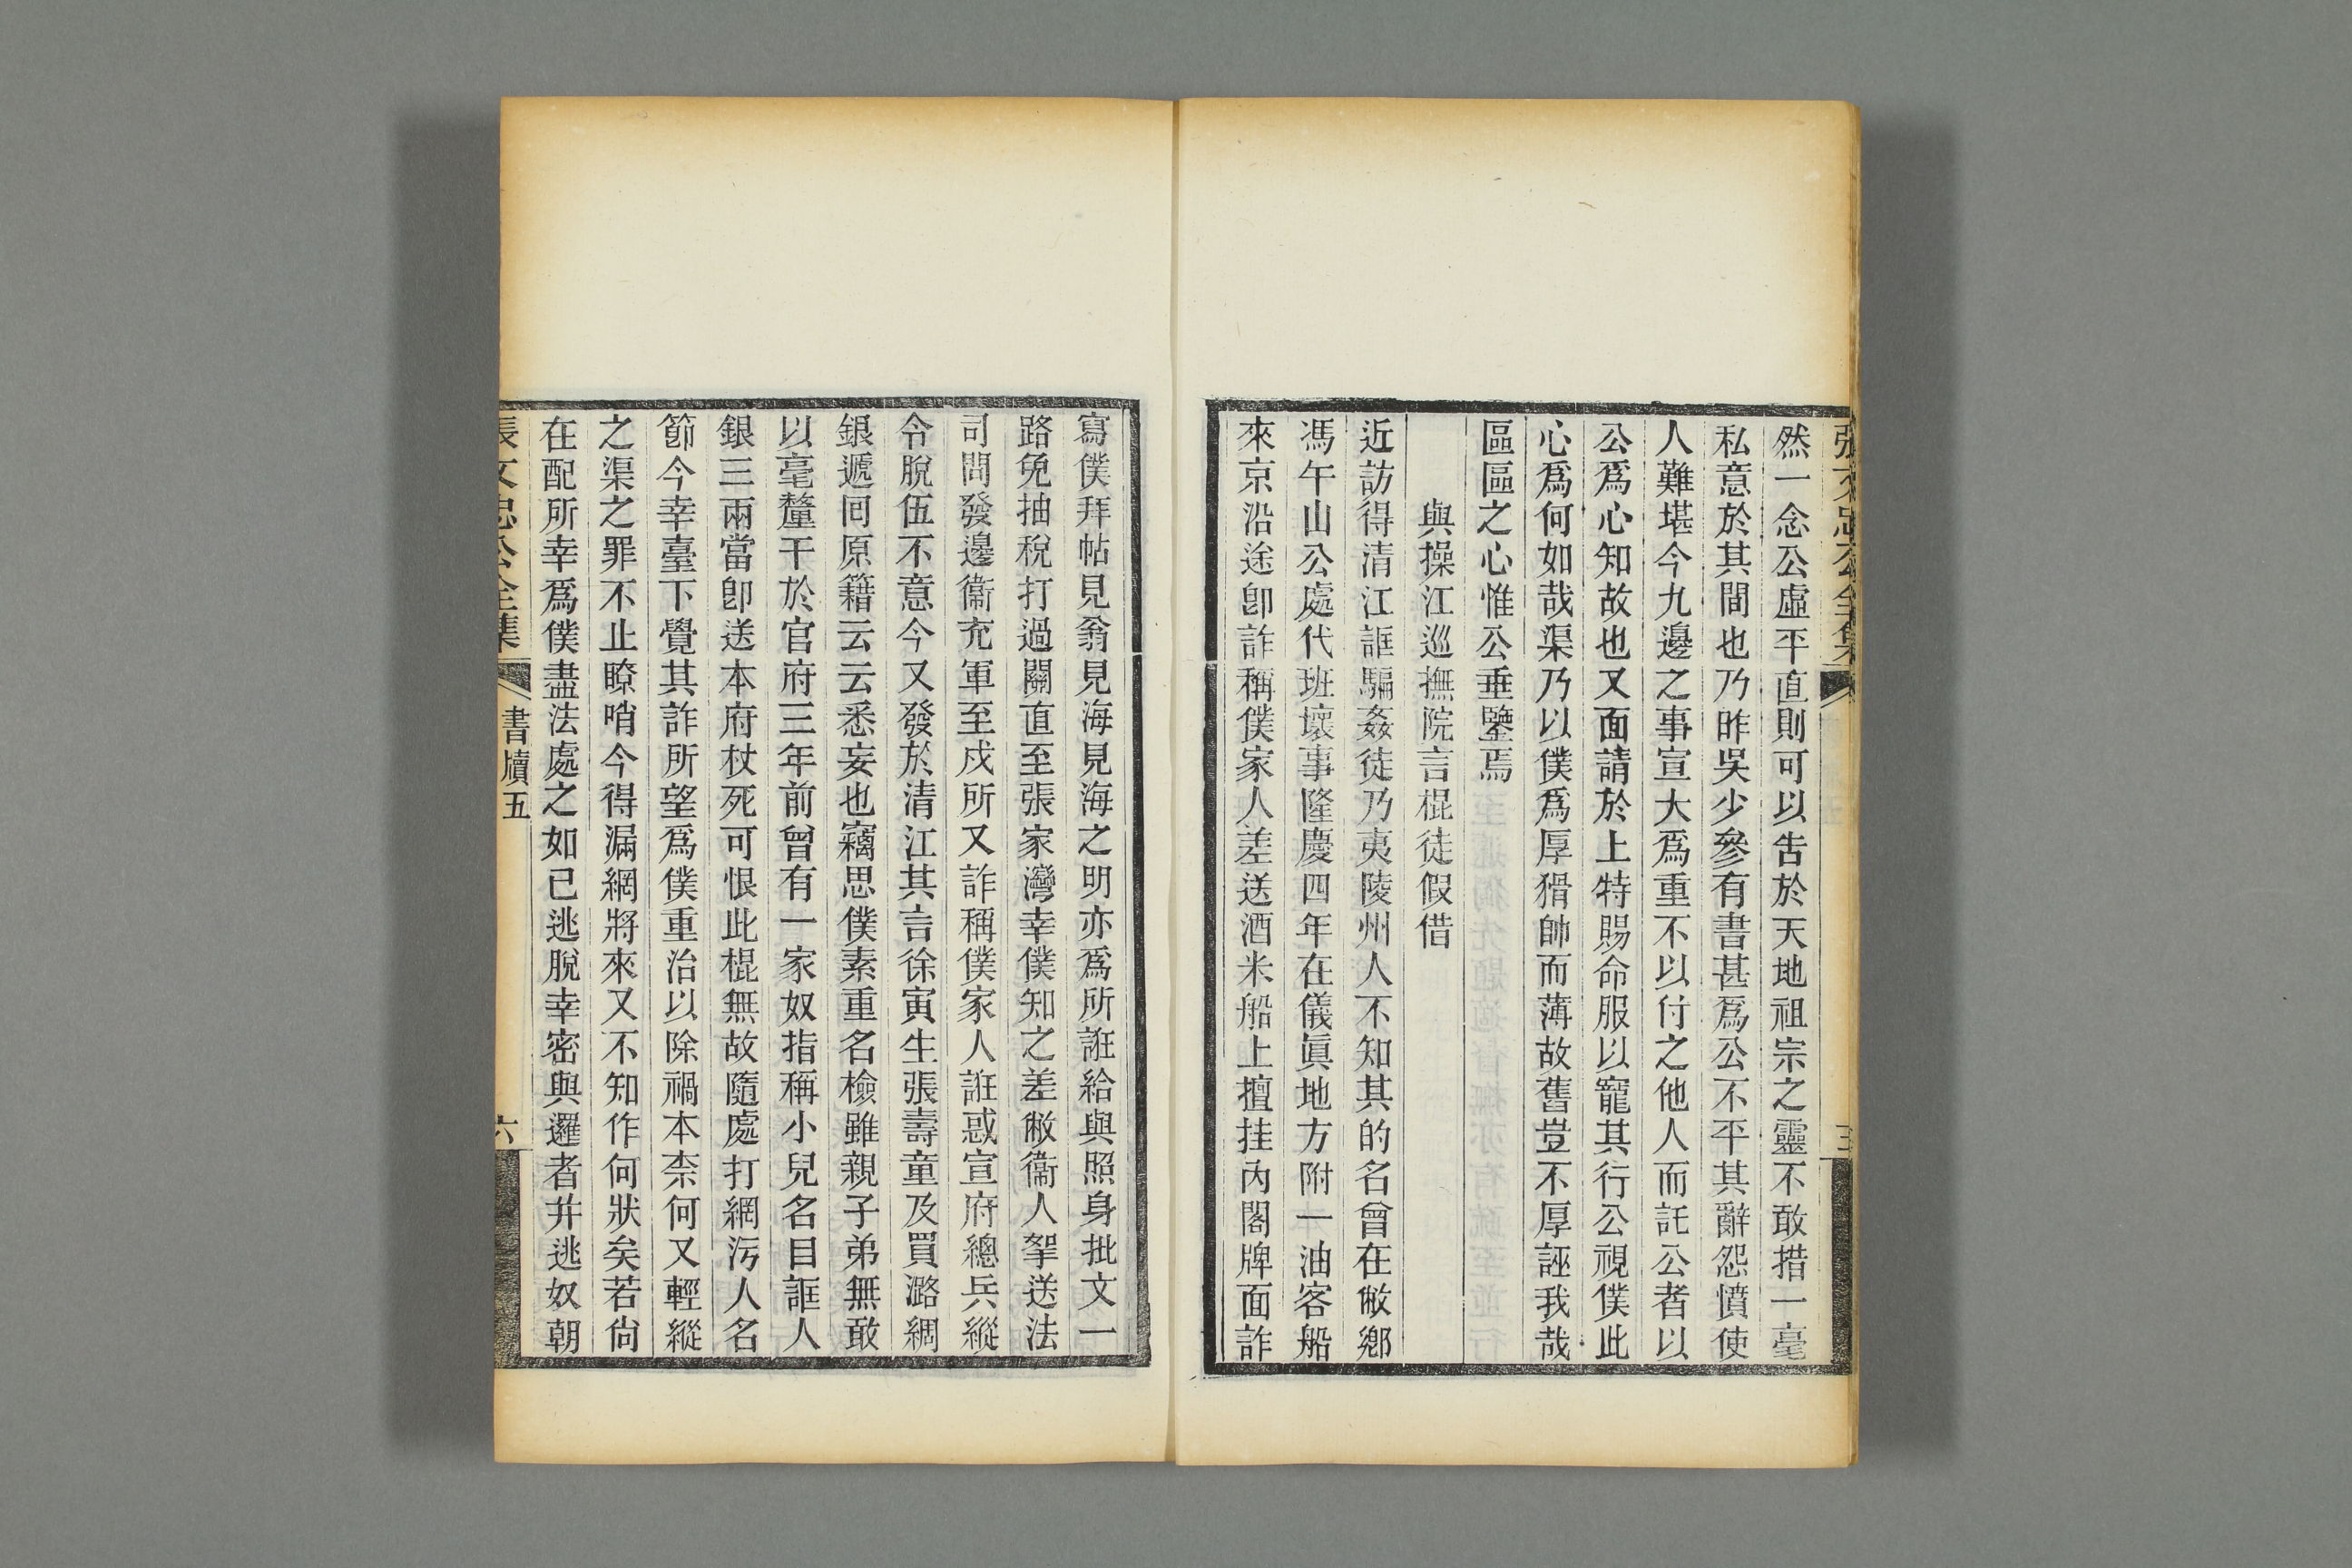 張文忠公全集
然一念公虛平直則可以告於天地祖宗之靈不敢措一毫
私意於其間也乃昨吳少參有書甚爲公不平其辭怨憤使
人難堪今九邊之事宣大爲重不以付之他人而託公者以
公爲心知故也又面請於上特賜命服以寵其行公視僕此
心爲何如哉渠乃以僕爲厚猾帥而薄故舊豈不厚誣我哉
區區之心惟公垂鑒焉
與操江巡撫院言棍徒假借
近訪得清江誆騙姦徒乃夷陵州人不知其的名曾在敝鄉
馮午山公處代班壞事隆慶四年在儀眞地方附一油客船
來京沿途卽詐稱僕家人差送酒米船上擅挂內閣牌面詐
寫僕拜帖見翁見海見海之明亦爲所誑給與照身批文一
路免抽稅打過關直至張家灣幸僕知之差敝衞人拏送法
司問發邊衞充軍至戍所又詐稱僕家人誑惑宣府總兵縱
令脫伍不意今又發於清江其言徐寅生張壽童及買潞綢
銀遞回原籍云云悉妄也竊思僕素重名檢雖親子弟無敢
以毫釐干於官府三年前曾有一家奴指稱小兒名目誆人
銀三兩當卽送本府杖死可恨此棍無故隨處打網污人名
節今幸臺下覺其詐所望爲僕重治以除禍本柰何又輕縱
之渠之罪不止瞭哨今得漏網將來又不知作何狀矣若尙
在配所幸爲僕盡法處之如已逃脫幸密與邏者幷逃奴朝
張文忠公全集
書牘五
六